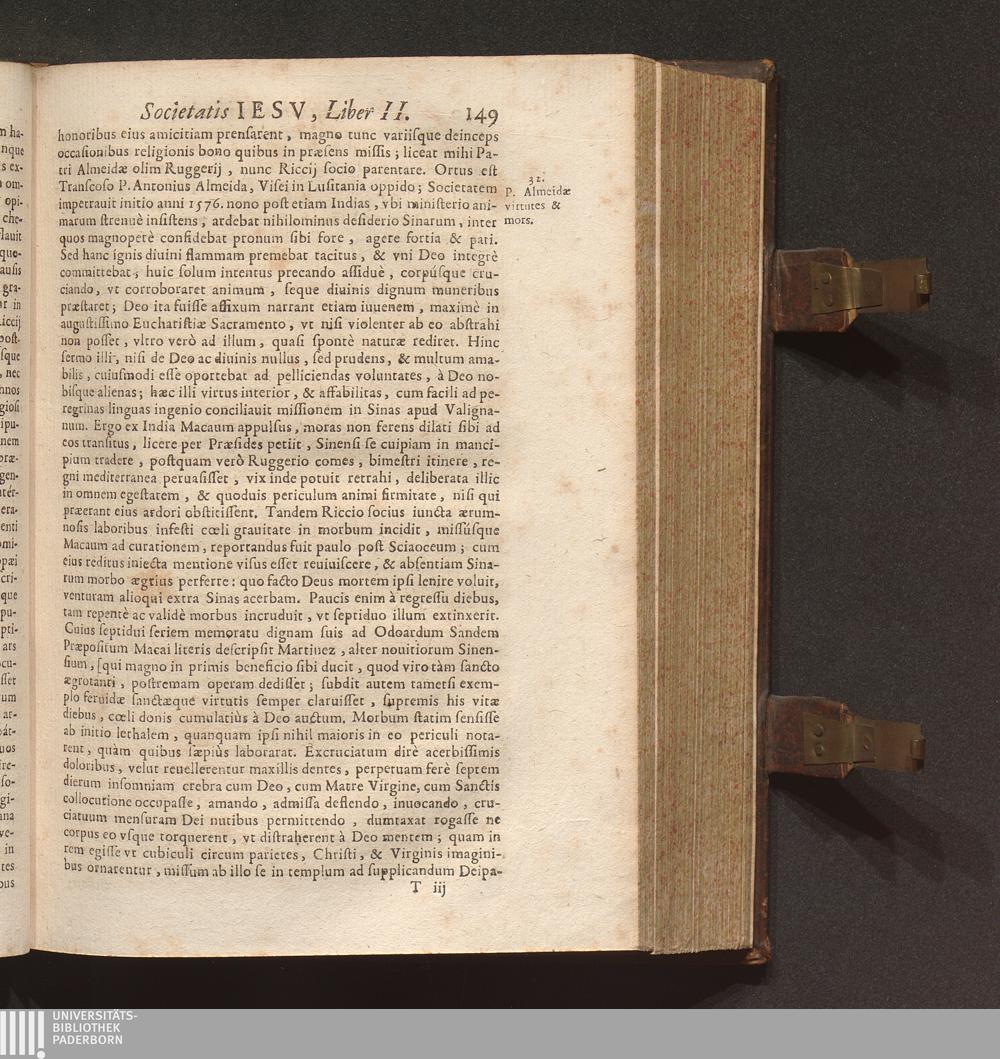 Societatis IESV, Liber II. 149
honoribus eius amicitiam prensarent, magno tunc variisque deinceps
occasionibus religionis bono quibus in præsens missis; liceat mihi Pa-
tri Almeidæ olim Ruggerij, nunc Riccij socio parentare. Ortus est
Transcoso P. Antonius Almeida, Visei in Lusitania oppido; Societatem
impetrauit initio anni 1576. nono post etiam Indias, vbi ministerio ani-
marum strenuè insistens, ardebat nihilominus desiderio Sinarum, inter
quos magnoperè confidebat pronum sibi fore, agere fortia & pati.
Sed hanc ignis diuini flammam premebat tacitus, & vni Deo integrè
committebat, huic solum intentus precando assiduè, corpúsque cru-
ciando, vt corroboraret animum, seque diuinis dignum muneribus
præstaret; Deo ita fuisse affixum narrant etiam iuuenem, maximè in
augustissimo Eucharistiæ Sacramento, vt nisi violenter ab eo abstrahi
non posset, vltro verò ad illum, quasi spontè naturæ rediret. Hinc
sermo illi, nisi de Deo ac diuinis nullus, sed prudens, & multum ama-
bilis, cuiusmodi esse oportebat ad pelliciendas voluntates, à Deo no-
bisque alienas; hæc illi virtus interior, & affabilitas, cum facili ad pe-
regrinas linguas ingenio conciliauit missionem in Sinas apud Valigna-
num. Ergo ex India Macaum appulsus, moras non ferens dilati sibi ad
eos transitus, licere per Præsides petiit, Sinensi se cuipiam in manci-
pium tradere, postquam verò Ruggerio comes, bimestri itinere, re-
gni mediterranea peruasisset, vix inde potuit retrahi, deliberata illic
in omnem egestatem, & quoduis periculum animi firmitate, nisi qui
præerant eius ardori obstitissent. Tandem Riccio socius iuncta ærum-
nosis laboribus infesti cœli grauitate in morbum incidit, missúsque
Macaum ad curationem, reportandus fuit paulo post Sciaoceum; cum
eius reditus iniecta mentione visus esset reuiuiscere, & absentiam Sina-
rum morbo ægrius perferre: quo facto Deus mortem ipsi lenire voluit,
venturam alioqui extra Sinas acerbam. Paucis enim à regressu diebus,
tam repentè ac validè morbus incruduit, vt septiduo illum extinxerit.
Cuius septidui seriem memoratu dignam suis ad Odoardum Sandem
Præpositum Macai literis descripsit Martinez, alter nouitiorum Sinen-
sium, [qui magno in primis beneficio sibi ducit, quod viro tàm sancto
ægrotanti, postremam operam dedisset; subdit autem tametsi exem-
plo feruidæ sanctæque virtutis semper claruisset, supremis his vitæ
diebus, cœli donis cumulatiùs à Deo auctum. Morbum statim sensisse
ab initio lethalem, quanquam ipsi nihil maioris in eo periculi nota-
rent, quàm quibus sæpiùs laborarat. Excruciatum dirè acerbissimis
doloribus, velut reuellerentur maxillis dentes, perpetuam ferè septem
dierum insomniam crebra cum Deo, cum Matre Virgine, cum Sanctis
collocutione occupasse, amando, admissa deflendo, inuocando, cru-
ciatuum mensuram Dei nutibus permittendo, dumtaxat rogasse ne
corpus eo vsque torquerent, vt distraherent à Deo mentem; quam in
rem egisse vt cubiculi circum parietes, Christi, & Virginis imagini-
bus ornarentur, missum ab illo se in templum ad supplicandum Deipa-
T iij
32.
P. Almeidæ
virtutes &
mors.
UNIVERSITÄTS-
BIBLIOTHEK
PADERBORN